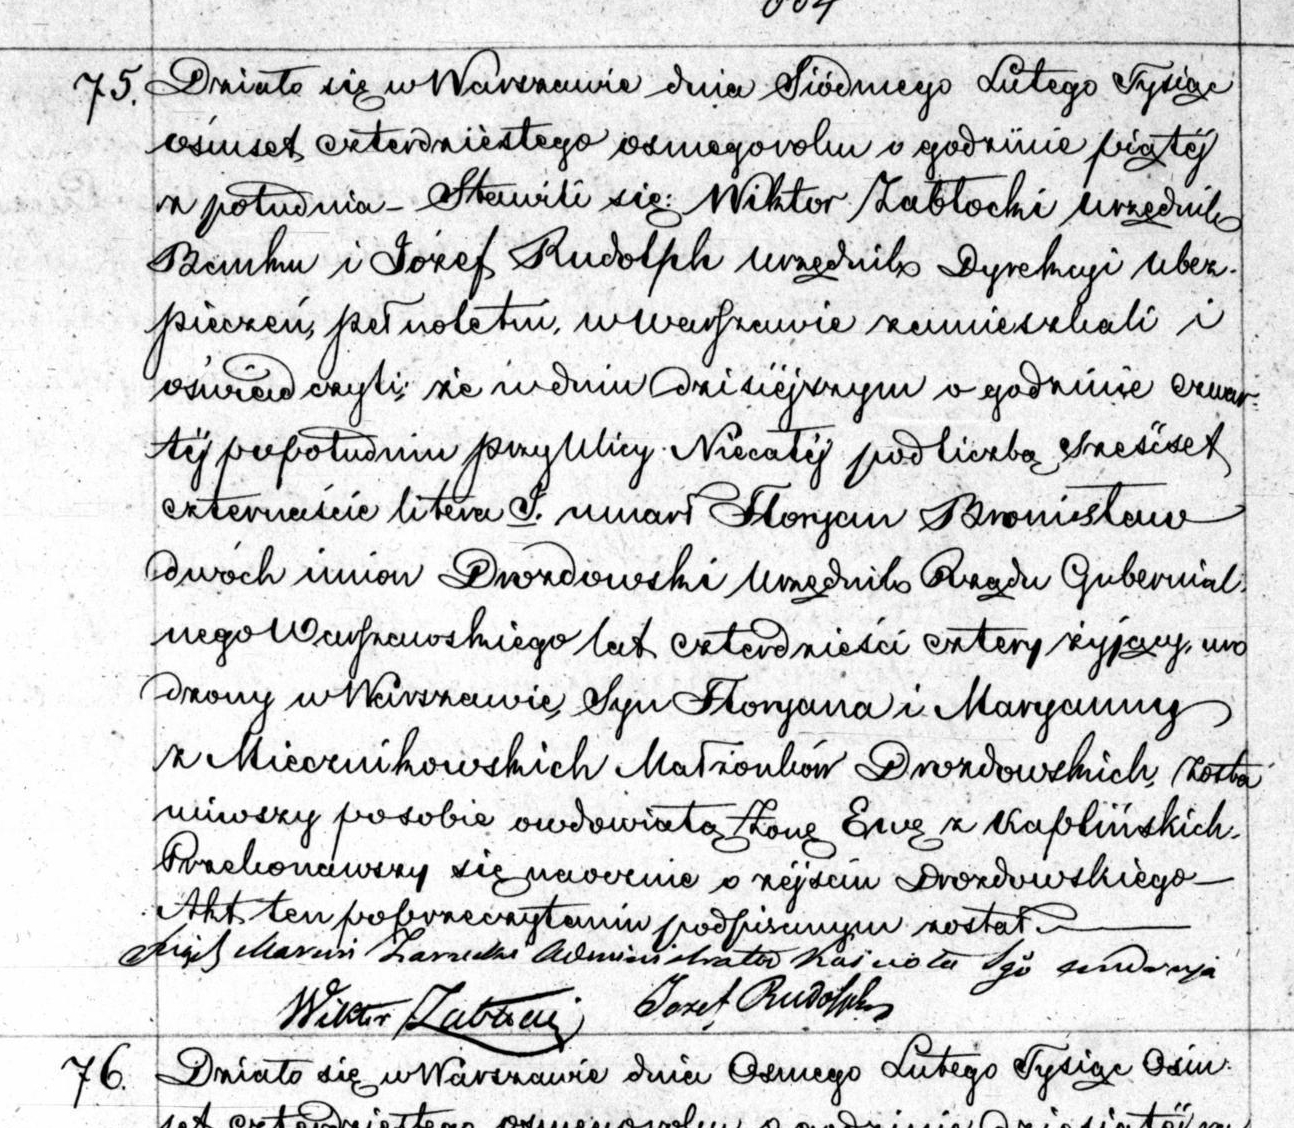 75. Działo się w Warszawie dnia Siódmego Lutego Tysiąc
ośmset czterdziestego osmego roku o godzinie piątéj
z południa – Stawili się: Wiktor Zabłocki Urzędnik
Banku i Józef Rudolph Urzędnik Dyrekcyi Ubez-
pieczeń, pełnoletni, w Warszawie zamieszkali i
oświadczyli; że w dniu dzisiéjszym o godzinie czwar-
téj popołudniu przy Ulicy Niecałéj pod liczbą sześćset
czternaście litera J. umarł Floryan Bronisław
dwóch imion Drozdowski Urzędnik Rządu Gubernial-
nego Warszawskiego lat czterdzieści cztery żyjący, uro
dzony w Warszawie, Syn Floryana i Maryanny
z Miecznikowskich Małżonków Drozdowskich, zosta
wiwszy po sobie owdowiałą Żonę Ewę z Kaplińskich.
Przekonawszy się naocznie o zéjściu Drozdowskiégo –
Akt ten po przeczytaniu podpisanym został.
Marcin Administrator Kościoła Sgo
Wiktor Zabłocki Józef Rudolph
76. Działo się w Warszawie dnia Osmego Lutego Tysiąc Ośm-
set czterdziestego osmego roku o godzinie dziesiątéj z